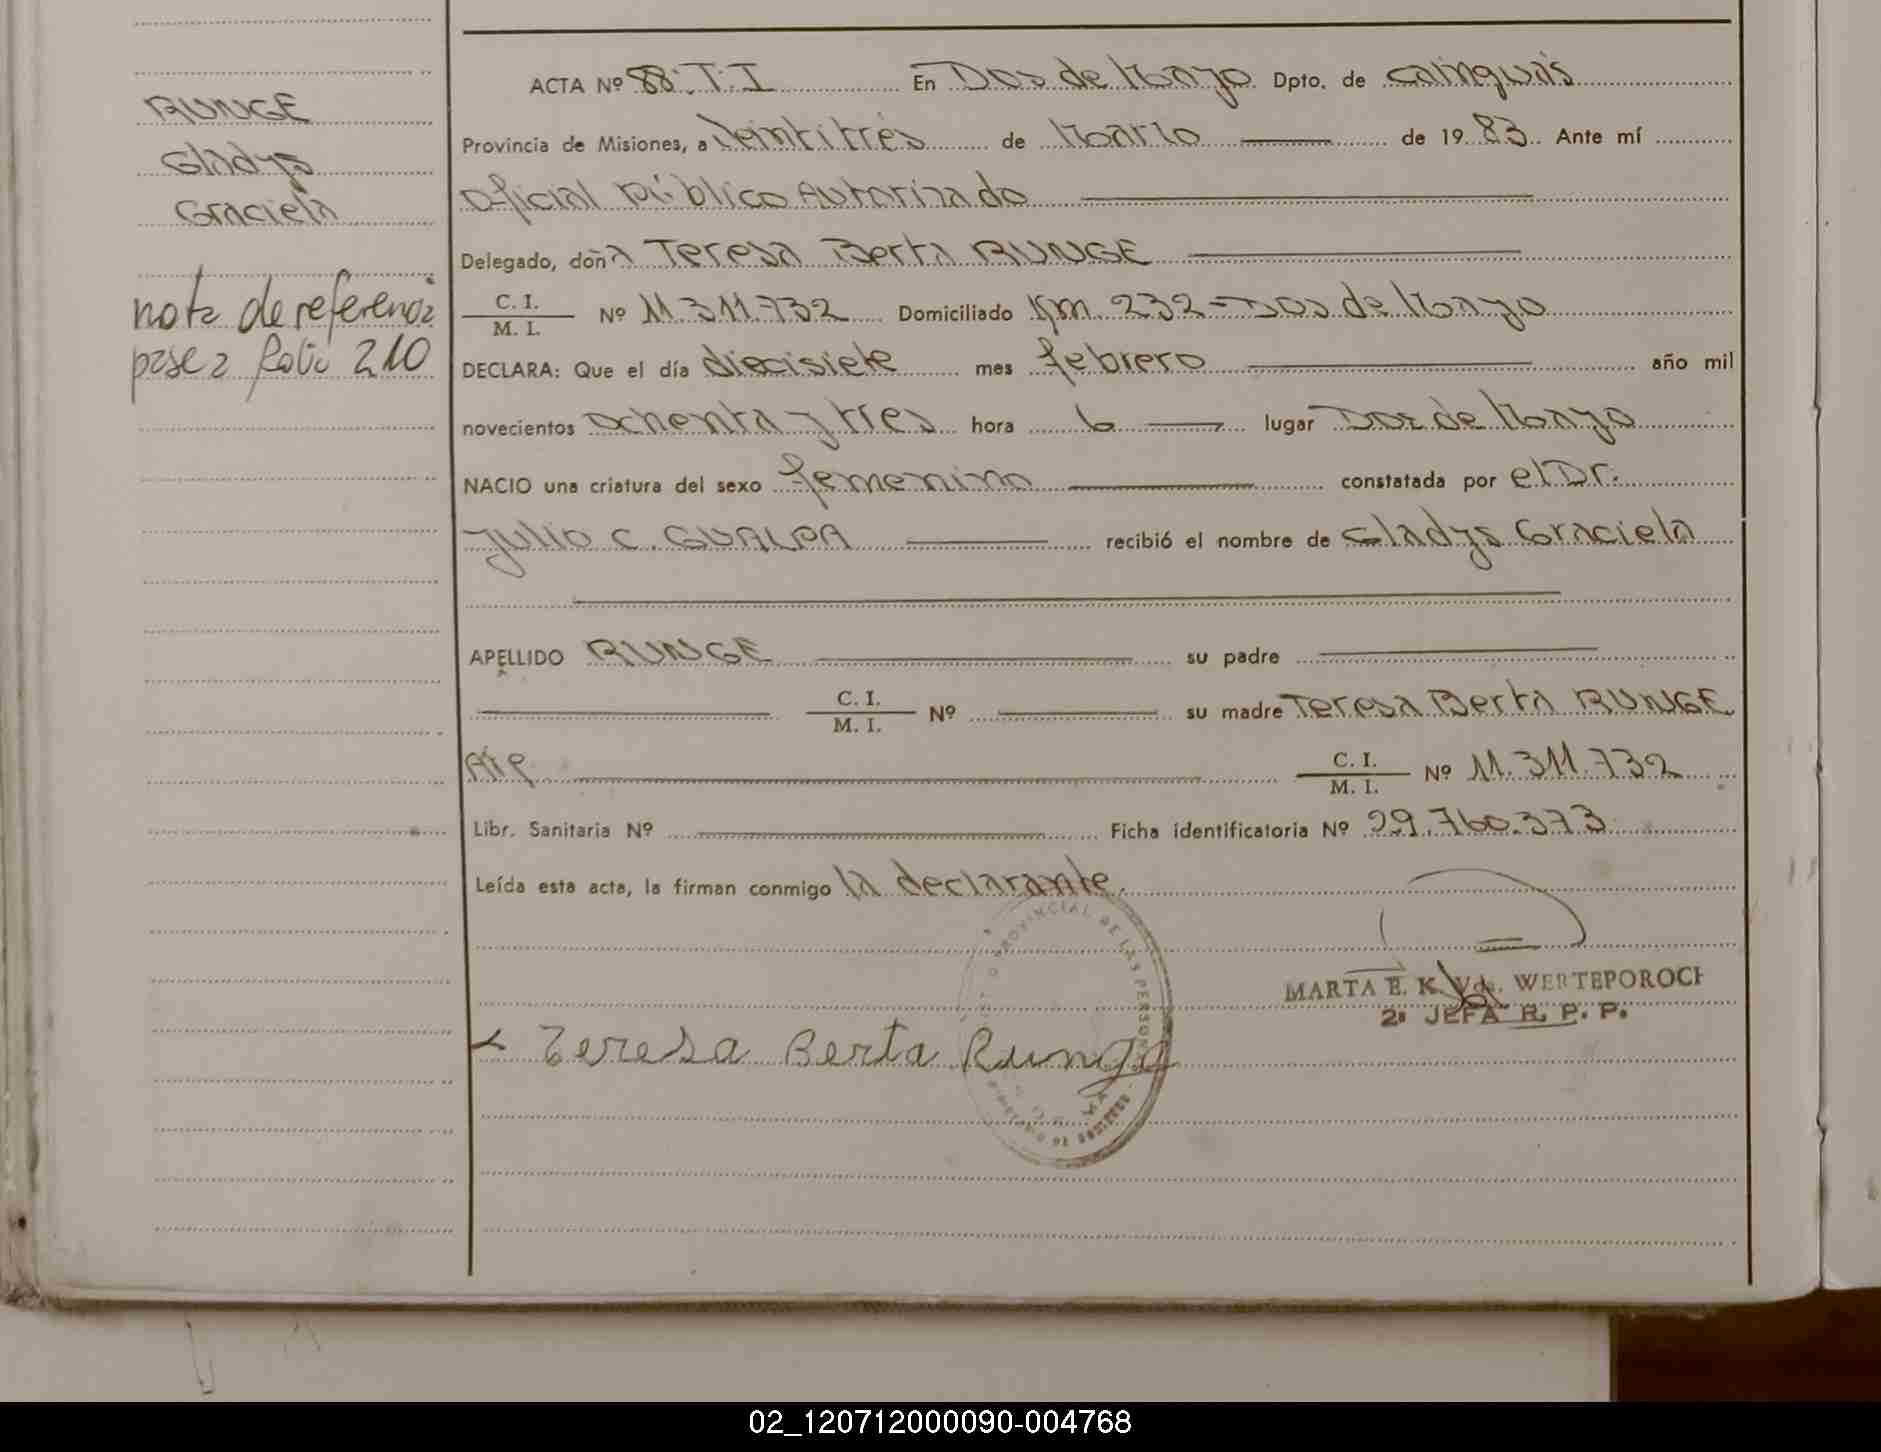 RUNGE
Gladys
Graciela
nota de referencia
pase a folio 210
ACTA Nº 88.T.I En Dos de Mayo Dpto. de Cainguás
Provincia de Misiones, a Veintitrés de Marzo de 1983. Ante mí
Oficial Público Autorizado
Delegado, doña Teresa Berta RUNGE
C. I.
M. I. Nº 11.311.732 Domiciliado Km. 232 - Dos de Mayo
DECLARA: Que el día diecisiete mes febrero año mil
novecientos ochenta y tres hora 6 lugar Dos de Mayo
NACIO una criatura del sexo femenino constatada por el Dr.
Julio C. GUALPA recibió el nombre de Gladys Graciela
APELLIDO RUNGE su padre
C. I.
M. I. Nº su madre Teresa Berta RUNGE
C. I.
M. I. Nº 11.311.732
Libr. Sanitaria Nº Ficha identificatoria Nº 29.760.373
Leída esta acta, la firman conmigo la declarante.
PROVINCIAL DE LAS PERSONAS
MARTA E. K. Vda. WERTEPOROCH
2ª JEFA R. P. P.
Teresa Berta Runge
02_120712000090-004768